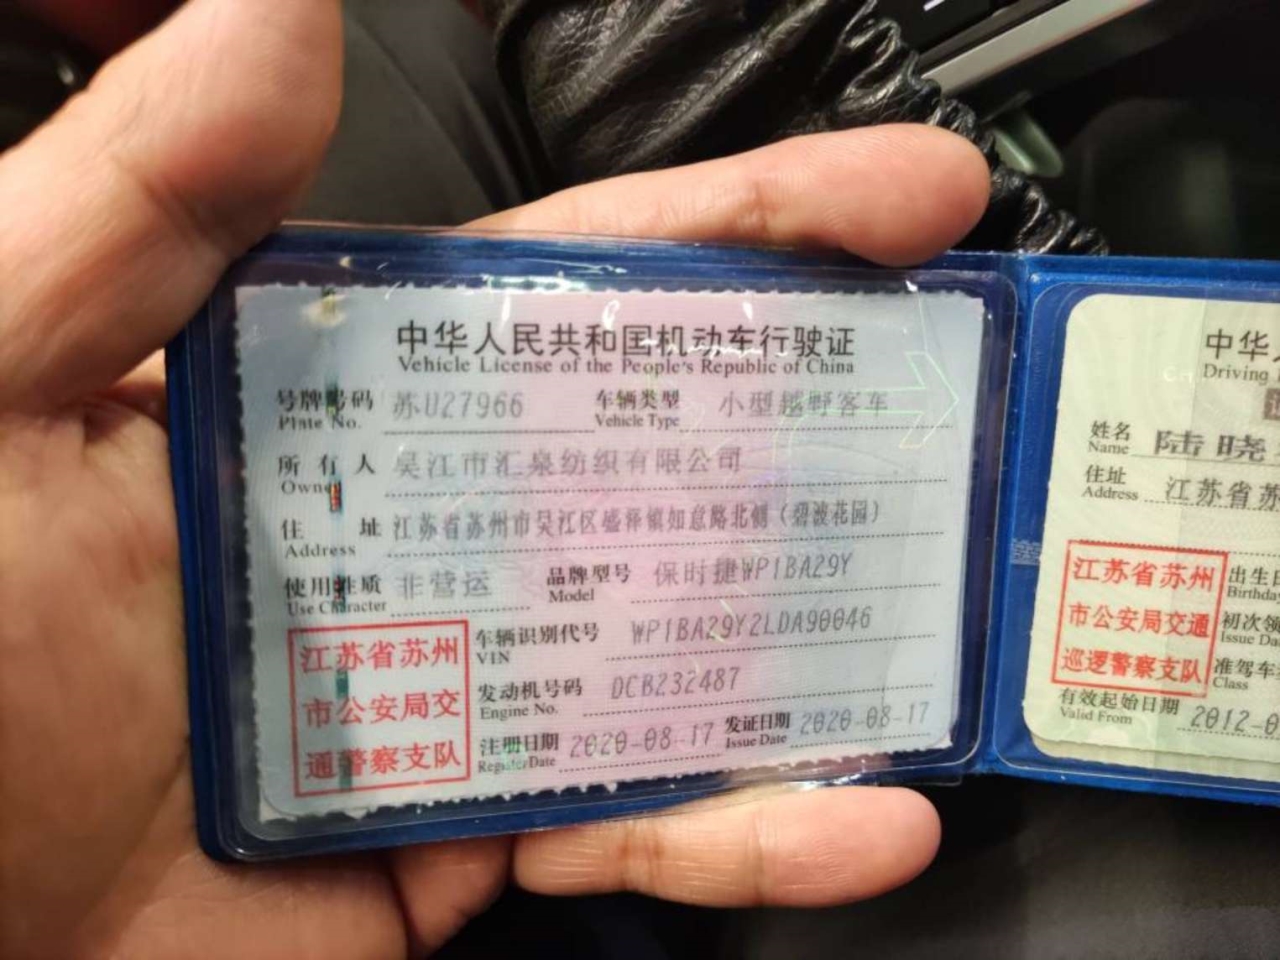 中华人民共和国机动车行驶证
Vehicle License of the People's Republic of China
号牌号码 苏U27966 车辆类型 小型越野客车
Plate No. Vehicle Type
所有人 吴江市汇泉纺织有限公司
Owner
住址 江苏省苏州市吴江区盛泽镇如意路北侧（碧波花园）
Address
使用性质 非营运 品牌型号 保时捷WP1BA29Y
Use Character Model
车辆识别代号 WP1BA29Y2LDA90046
VIN
发动机号码 DCB232487
Engine No.
注册日期 2020-08-17 发证日期 2020-08-17
Register Date Issue Date
江苏省苏州
市公安局交
通警察支队
中华人
Driving
姓名 陆晓
Name
住址 江苏省苏
Address
江苏省苏州
市公安局交通
巡逻警察支队
出生日
Birthday
初次领
Issue Da
准驾车
Class
有效起始日期 2012-0
Valid From